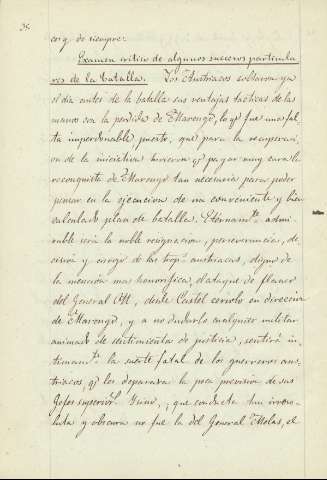 36.
cosq. de siempre.
Examen critico de algunos sucesos particula
res de la batalla. Los Austriacos soltaron ya
el dia antes de la batalla sus ventajas tacticas de las
manos con la perdida de Marengo, lo qe. fue una fal,
ta imperdonable, puesto, que para la recuperaci,
on de la iniciativa tuvieron qe. pagar muy cara la
reconquista de Marengo tan necesaria para poder
pensar en la ejecucion de un conveniente y bien
calculado plan de batalla. Eternamte. admi,
rable será la noble resignacion, perseverancia, de,
cision y corage de las tropas austriacas, digno de
la mencion mas honorifica, el ataque de flanco
del General Ott, desde Castel ceriolo en direccion
de Marengo, y a no dudarlo cualquier militar
animado de sentimientos de justicia, sentirá in,
timamte. la suerte fatal de los guerreros aus,
triacos, qe. les deparara la poca prevision de sus
Gefes superiors. que conducta tan irreso,
luta y obscura no fue la del General Melas, el